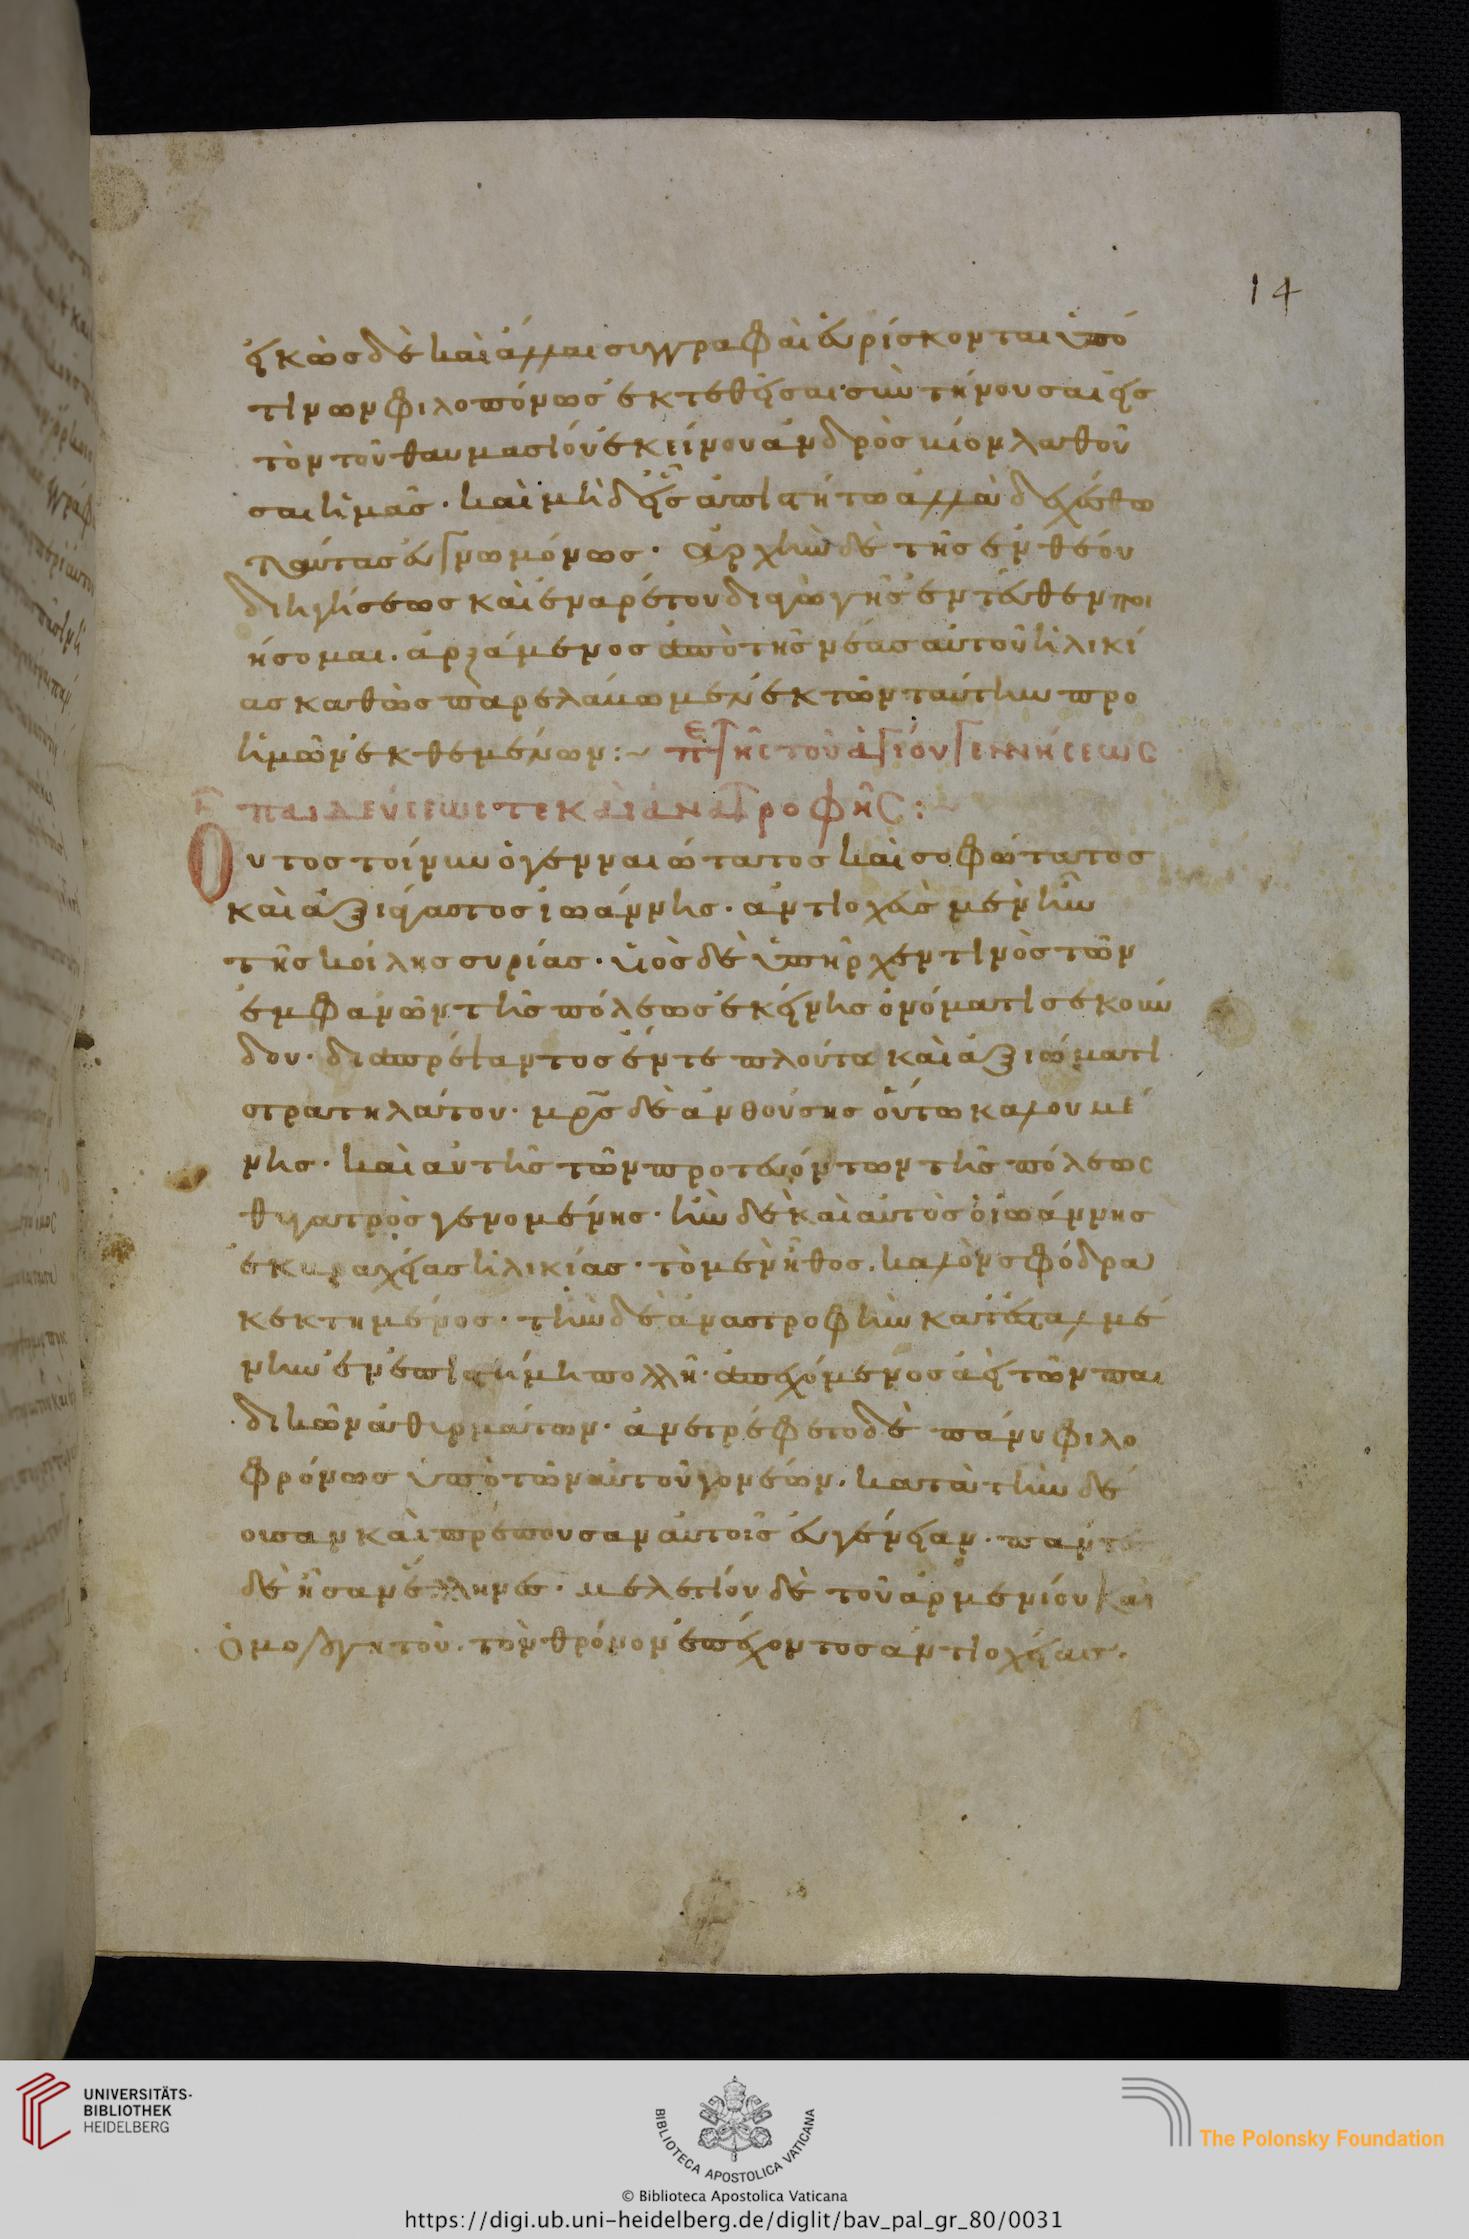 14
εἰκὼς δὲ καὶ ἄλλαι συγγραφαὶ εὑρίσκονται ὑπό
τινων φιλοπόνως ἐκτεθεῖσαι συντείνουσαι εἰς
τὸν τοῦ θαυμασίου ἐκείνου ἀνδρὸς βίον λαθοῦ
σαι ἡμᾶς· καὶ μηδεὶς ἀπιστήτω ἀλλὰ δεχέσθω
ταύτας εὐγνωμόνως· ἀρχὴν δὲ τῆς ἐνθέου
διηγήσεως καὶ ἐναρέτου διαγωγῆς ἐντεῦθεν ποι
ήσομαι. ἀρξάμενος ἀπὸ τῆς νέας αὐτοῦ ἡλικί
ας καθὼς παρελάβωμεν ἐκ τῶν ταύτην πρὸ
ἡμῶν ἐκθεμένων :~ περὶ τῆς τοῦ ἁγίου γεννήσεως
παιδεύσεως τε καὶ ἀνατροφῆς :~
Οὗτος τοίνυν ὁ γενναιώτατος καὶ σοφώτατος
καὶ ἀξιάγαστος ἰωάννης· ἀντιοχεὺς μὲν ἦν
τῆς κοίλης συρίας· υἱὸς δὲ ὑπῆρχεν τινὸς τῶν
ἐμφανῶν τῆς πόλεως ἐκείνης ὀνόματι σεκούν
δου· διαπρέψαντος ἔν τε πλούτω καὶ ἀξιώματι
στρατηλάτου· μρς δὲ ἀνθούσης οὕτω καλουμέ
νης· καὶ αὐτῆς τῶν προτευόντων τῆς πόλεως
θυγατρὸς γενομένης· ἦν δὲ καὶ αὐτὸς ὁ ἰωάννης
ἐκ βραχείας ἡλικίας· τὸ μὲν ἦθος. καλὸν σφόδρα
κεκτημένος· τὴν δὲ ἀναστροφὴν κατεσταλμέ
νην ἐν ἐπιστήμη πολλῆ· ἀπεχόμενος ἀεὶ τῶν παι
δικῶν ἀθυρμάτων· ἀνετρέφετο δὲ πάνυ φιλο
φρόνως ὑπὸ τῶν αὐτοῦ γονέων· κατὰ τὴν δέ
ουσαν καὶ πρέπουσαν αὐτοῖς εὐγένειαν· πάντες
δὲ ἦσαν ἕλληνες· μελετίου δὲ τοῦ ἀρμενίου καὶ
ὁμολογητοῦ. τὸν θρόνον ἐπέχοντος ἀντιοχείας.
UNIVERSITÄTS-
BIBLIOTHEK
HEIDELBERG
BIBLIOTECA APOSTOLICA VATICANA
The Polonsky Foundation
© Biblioteca Apostolica Vaticana
https://digi.ub.uni-heidelberg.de/diglit/bav_pal_gr_80/0031